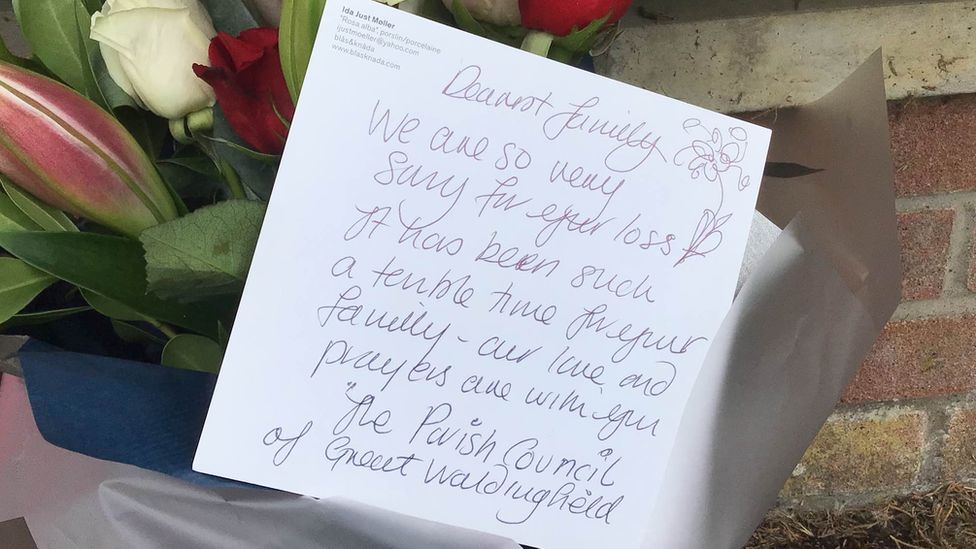 Ida Just Møller
"Rosa alba" porslin/porcelaine
ijustmoeller@yahoo.com
blås&knåda
www.blasknada.com
Dearest family
We are so very
Sorry for your loss
It has been such
a terrible time for your
family - our love and
prayers are with you
The Parish Council
of Great Waldingfield